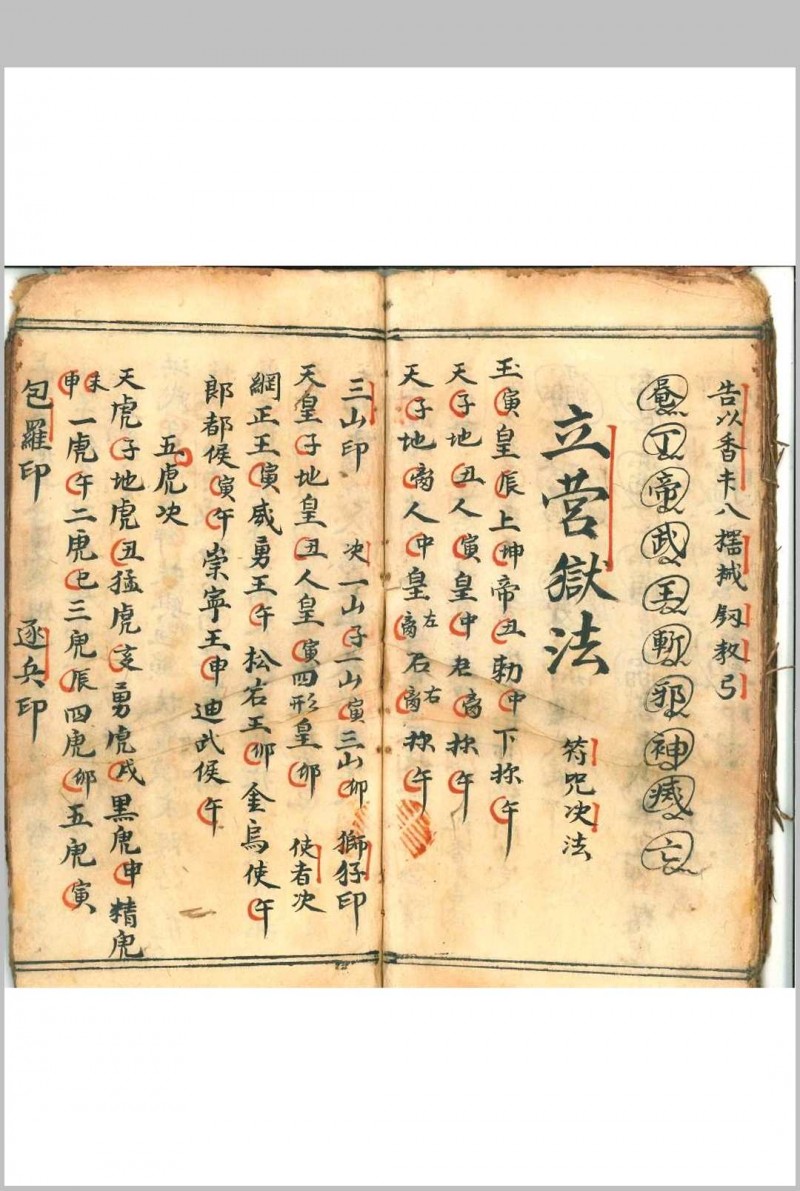 告以香卡八擂械 釼教弓
帝武王斬邪神滅亡
立营獄法
符咒决法
玉寅皇辰上坤帝丑勅中下称午
天子地丑人寅皇中君离称午
天子地离人中皇离左右离右称午
三山印 次一山子一山寅三山卯 獅豸印
天皇子地皇丑人皇寅四形皇卯 使者次
網正王寅威勇王午松岩王卯金烏使午
郎都侯寅午崇寧王申迪武侯午
五虎次
天虎子地虎丑猛虎亥勇虎戌黑虎申精虎
未申一虎午二虎巳三虎辰四虎卯五虎寅
包羅印 逐兵印